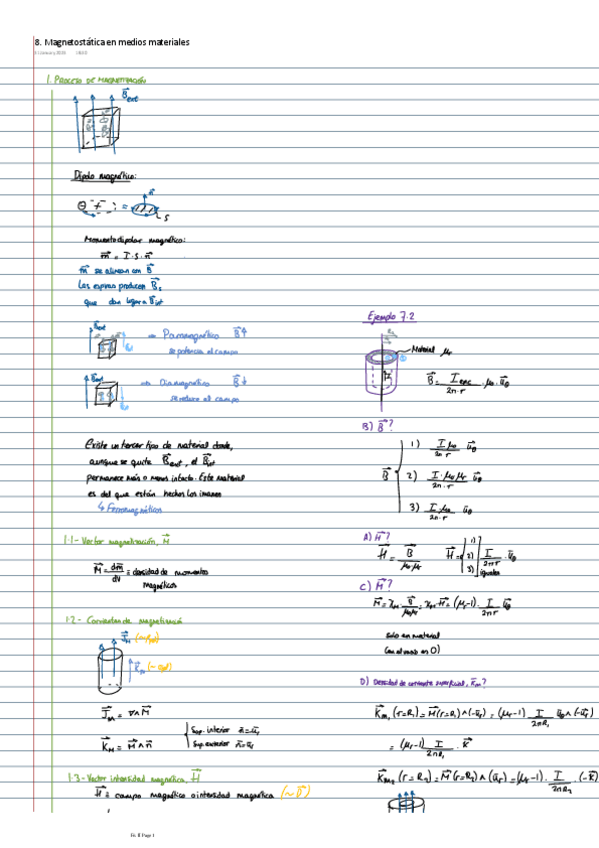 8. Magnetostática en medios materiales
1. PROCESO DE MAGNETIZACIÓN
B⃗ext
Dipolo magnético:
n⃗
S
Momento dipolar magnético:
m⃗ = I · S · n⃗
m⃗ se alinean con B⃗
Las espiras producen B⃗s
que dan lugar a B⃗int
B⃗ext
→ Paramagnético B⃗↑
se potencia el campo
B⃗ext
→ Diamagnético B⃗↓
se reduce el campo
Existe un tercer tipo de material donde,
aunque se quite B⃗ext, el B⃗int
permanece más o menos intacto. Este material
es del que están hechos los imanes
↳ Ferromagnético
1.1- Vector magnetización, M⃗
M⃗ = dm⃗/dV ≡ densidad de momentos
magnéticos
1.2- Corrientes de magnetización
J⃗M
K⃗M
J⃗M = ∇∧M⃗
K⃗M = M⃗∧n⃗ { Sup. interior n⃗=-u⃗r
Sup. exterior n⃗=u⃗r
1.3- Vector intensidad magnética, H⃗
H⃗ ≡ campo magnético o intensidad magnética (~B⃗)
Ejemplo 7.2
Material μr
B⃗ = Ienc/2π·r · μ0 · u⃗θ
B) B⃗?
B⃗ { 1) I μ0/2π·r u⃗θ
2) I·μ0μr/2π·r u⃗θ
3) I μ0/2π·r u⃗θ
A) H⃗?
H⃗ = B⃗/μ0μr H⃗ = { 1) 2) 3) iguales } I/2πr · u⃗θ
C) M⃗?
M⃗ = χm · B⃗/μ0μr = χm·H⃗ = (μr-1) · I/2πr u⃗θ
Solo en material
(en el vacío es 0)
D) Densidad de corriente superficial, K⃗m?
K⃗m1 (r=R1) = M⃗(r=R1)∧(-u⃗r) = (μr-1) I/2πR1 u⃗θ∧(-u⃗r)
= (μr-1) I/2πR1 · k⃗
K⃗m2 (r=R2) = M⃗(r=R2)∧(u⃗r) = (μr-1) · I/2πR2 · (-k⃗)
Ex. II Page 1